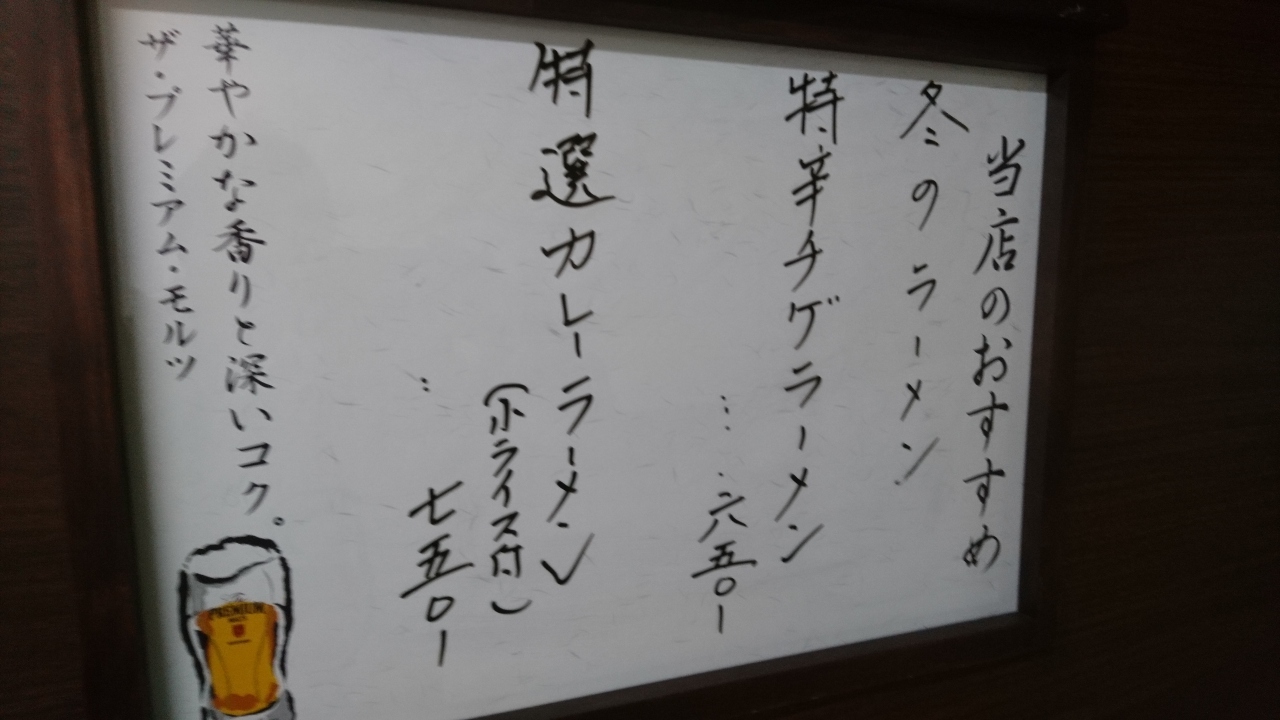 当店のおすすめ
冬のラーメン
特辛チゲラーメン
……六五〇ー
特選カレーラーメン
(小ライス付)
…七五〇ー
華やかな香りと深いコク。
ザ・プレミアム・モルツ
PREMIUM